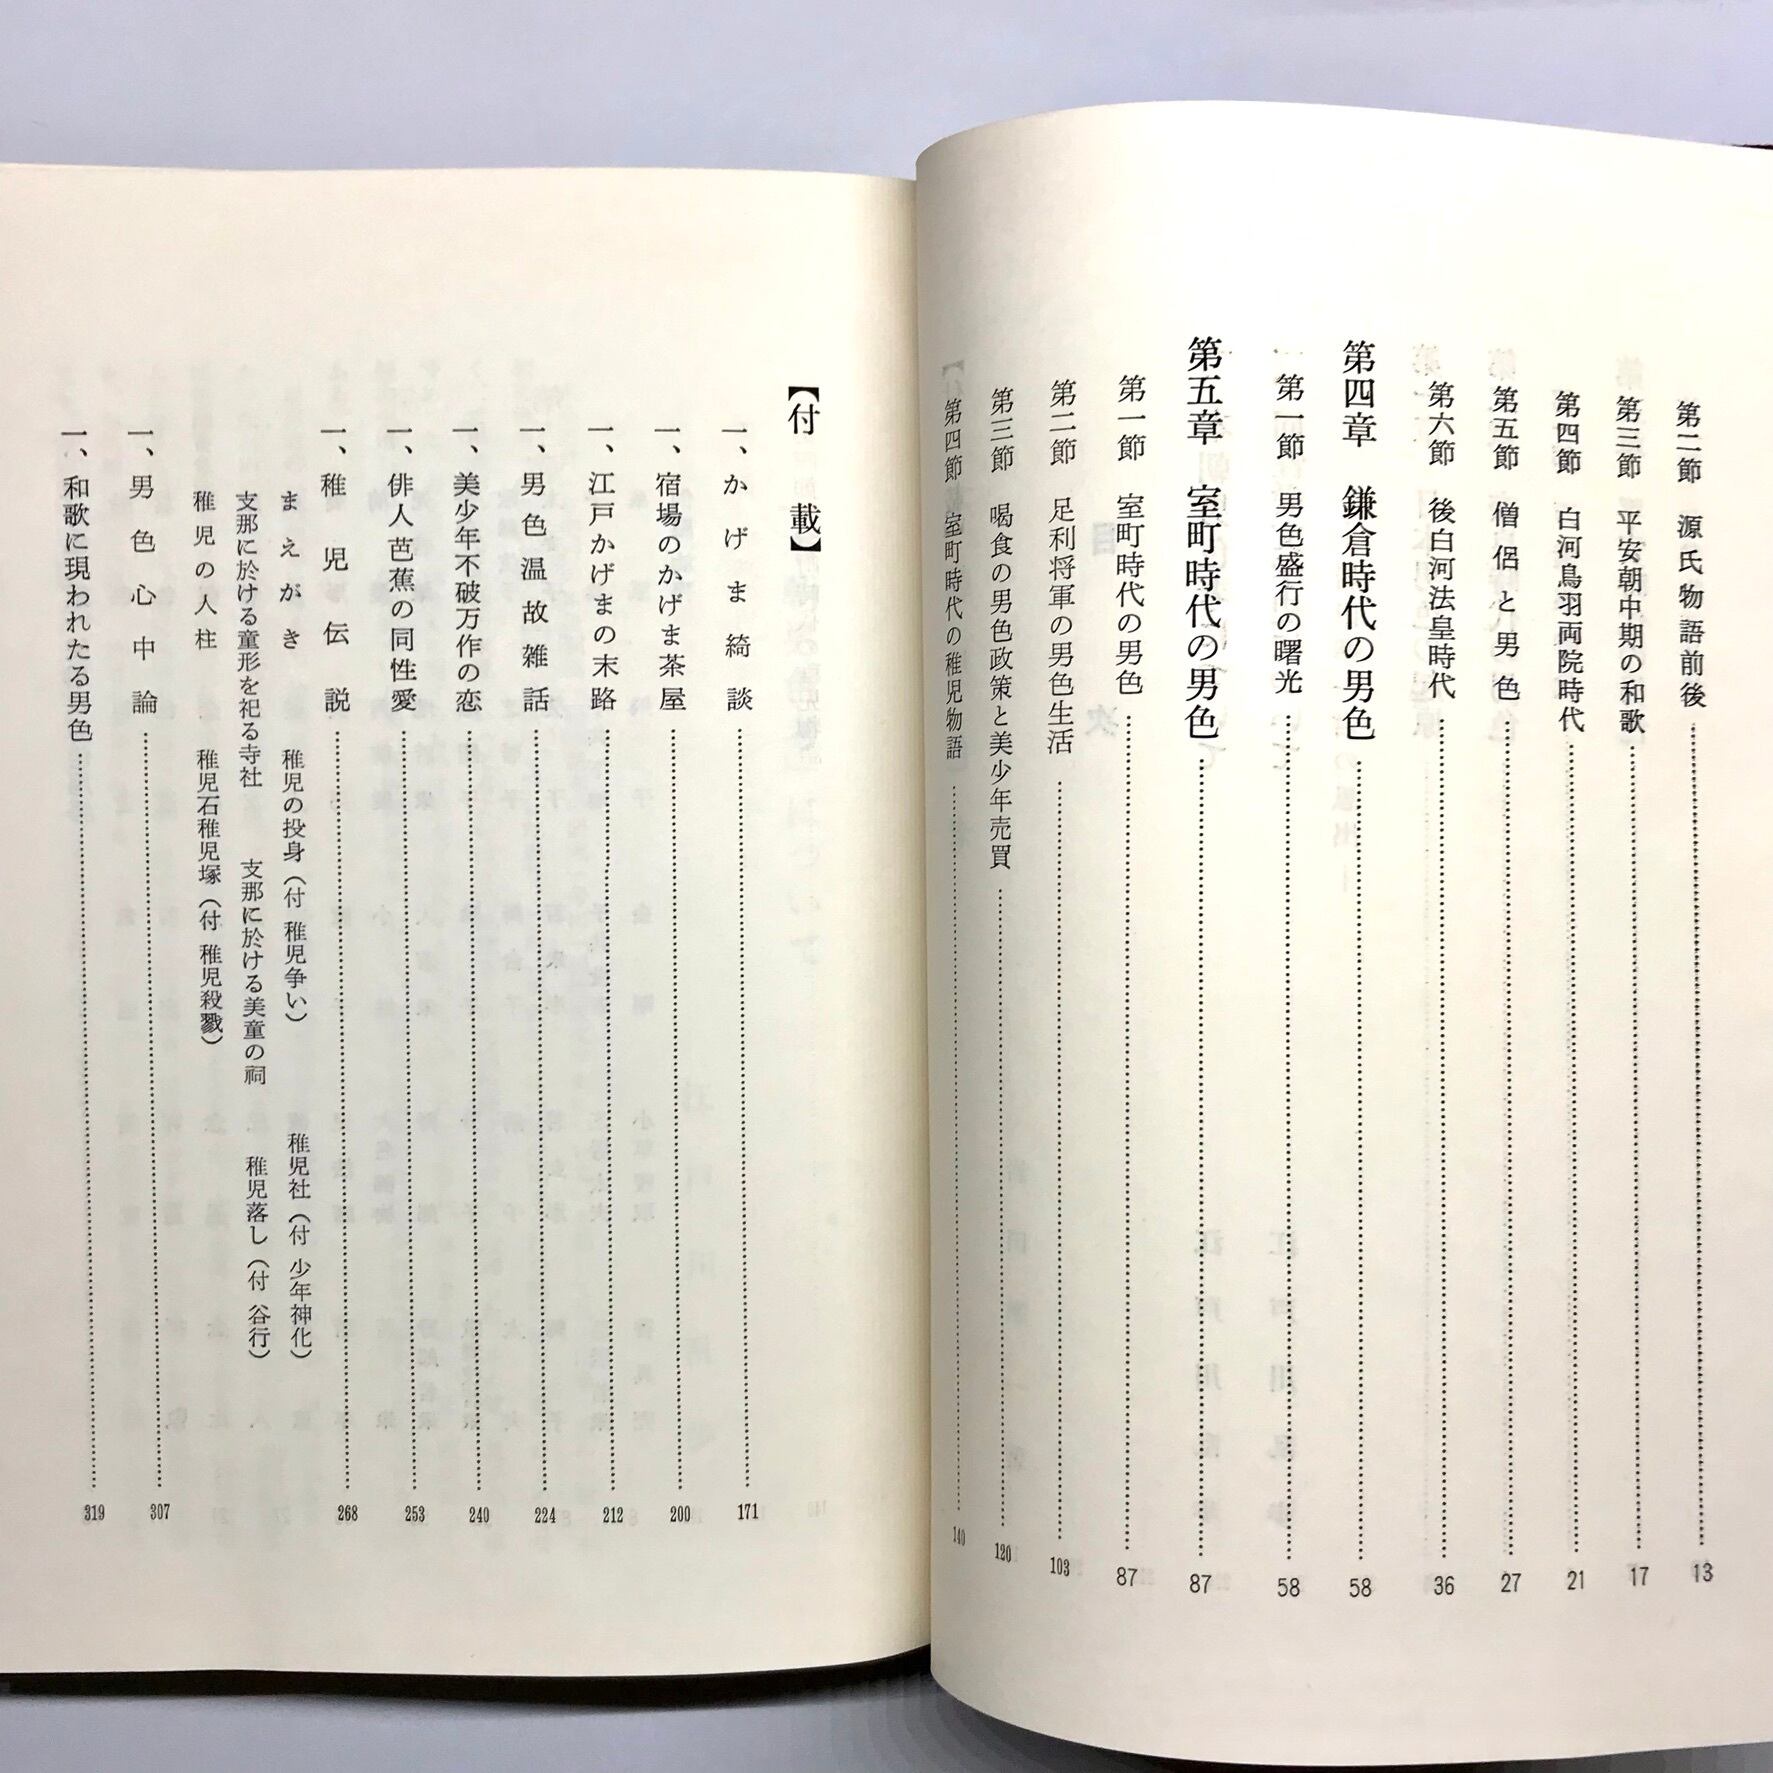 第二節 源氏物語前後 13
第三節 平安朝中期の和歌 17
第四節 白河鳥羽両院時代 21
第五節 僧侶と男色 27
第六節 後白河法皇時代 36
第四章 鎌倉時代の男色 58
第一節 男色盛行の曙光 58
第五章 室町時代の男色 87
第一節 室町時代の男色 87
第二節 足利将軍の男色生活 103
第三節 喝食の男色政策と美少年売買 120
第四節 室町時代の稚児物語 140
【付 載】
一、かげま綺談 171
一、宿場のかげま茶屋 200
一、江戸かげまの末路 212
一、男色温故雑話 224
一、美少年不破万作の恋 240
一、俳人芭蕉の同性愛 253
一、稚児伝説 268
まえがき 稚児の投身(付 稚児争い) 稚児社(付 少年神化)
支那に於ける童形を祀る寺社 支那に於ける美童の祠 稚児落し(付 谷行)
稚児の人柱 稚児石稚児塚(付 稚児殺戮)
一、男色心中論 307
一、和歌に現われたる男色 319